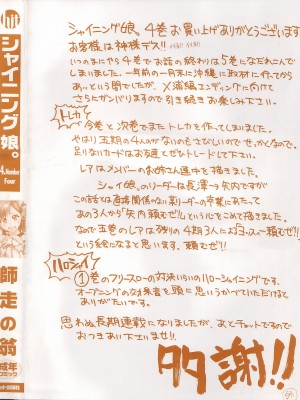 シャイニング娘。
4. Number Four
師走の翁
成年コミック
シャイニング娘。4巻お買上げありがとうございます
お客様は神様デス!!
いつのまにやら4巻でお話の終わりは5巻になだれこんで
しまいました。一年前の一月末に沖縄に取材に行ってから
あっという間でしたが、×浦編エンディングに向けて
さらにガンバリますので引き続きお楽しみ下さい。
トレカ
今巻と次巻でまたトレカを作ってしまいました。
やはり五期の4人のがないのもさびしいので、せっかくなので。
足りないカードはお友達とぜひトレードして下さい。
レアはメンバーのお姉さん達を描きました。
シャイ娘。のリーダーは長澤→矢内ですが
この話とは直接関係のない某リーダーの卒業にあたって
あの3人から「矢内頼むぜ!!」という心をこめて描きました。
なので五巻のレアは残りの4期3人に
という絵になると思います。頼むぜ!!
ハロシャイ
①巻のフリースローの対決いらいのハローシャイニングです。
オープニングの対決者を頭に思いうかべていただけると
ありがたいです。
思わぬ長期連載になりましたが、あとチョットですので
おつきあい下さいませ!!
多謝!!